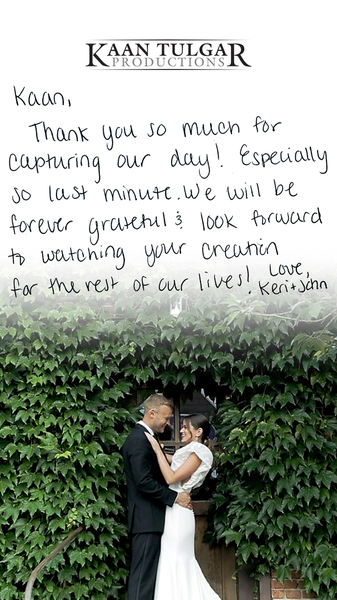 KAAN TULGAR
PRODUCTIONS
Kaan,
Thank you so much for
capturing our day! Especially
so last minute. We will be
forever grateful & look forward
to watching your creation
for the rest of our lives! Love,
Keri + John